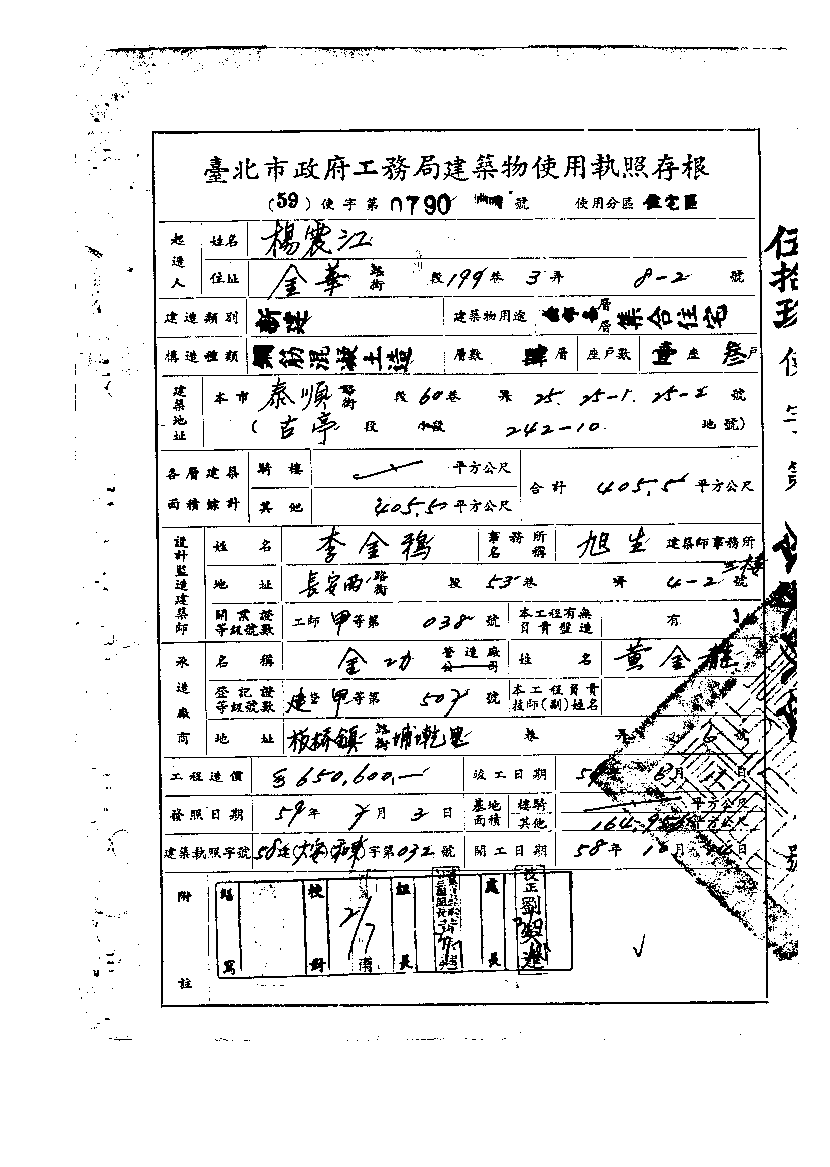 臺北市政府工務局建築物使用執照存根
(59)使字第0790號 使用分區 住宅區
起造人 姓名 楊震江
住址 金華 路街 段199巷3弄 8-2 號
建造類別 新建 建築物用途 層層 集合住宅
構造種類 鋼筋混凝土造 層數 層 座戶數 座 叁戶
建築地址 本市 泰順 路街 段60巷 弄 25. 25-1. 25-2 號
(古亭 段 小段 242-10 地號)
各層建築面積總計 騎樓 平方公尺
其他 405.50 平方公尺 合計 405.50 平方公尺
設計監造建築師 姓名 李金鴉 事務所名稱 旭生 建築師事務所
地址 長安西 路街 段53巷 弄 4-2 號 三樓
開業證等級號數 工師 甲等第 038 號 本工程有無負責監造 有
承造廠商 名稱 金功 營造廠公司 姓名 黃金龍
登記證等級號數 建登甲等第 507 號 本工程負責技師(副)姓名
地址 板橋鎮 路街 埔乾里 巷 弄 6 號
工程造價 650,600.— 竣工日期 59年6月 日
發照日期 59年7月3日 基地面積 樓騎 平方公尺
其他 164.95 平方公尺
建築執照字號 58建 字第032號 開工日期 58年10月 日
附註 繕寫 校對 2/7 組長 處長 技正劉
伍拾玖使字第 號